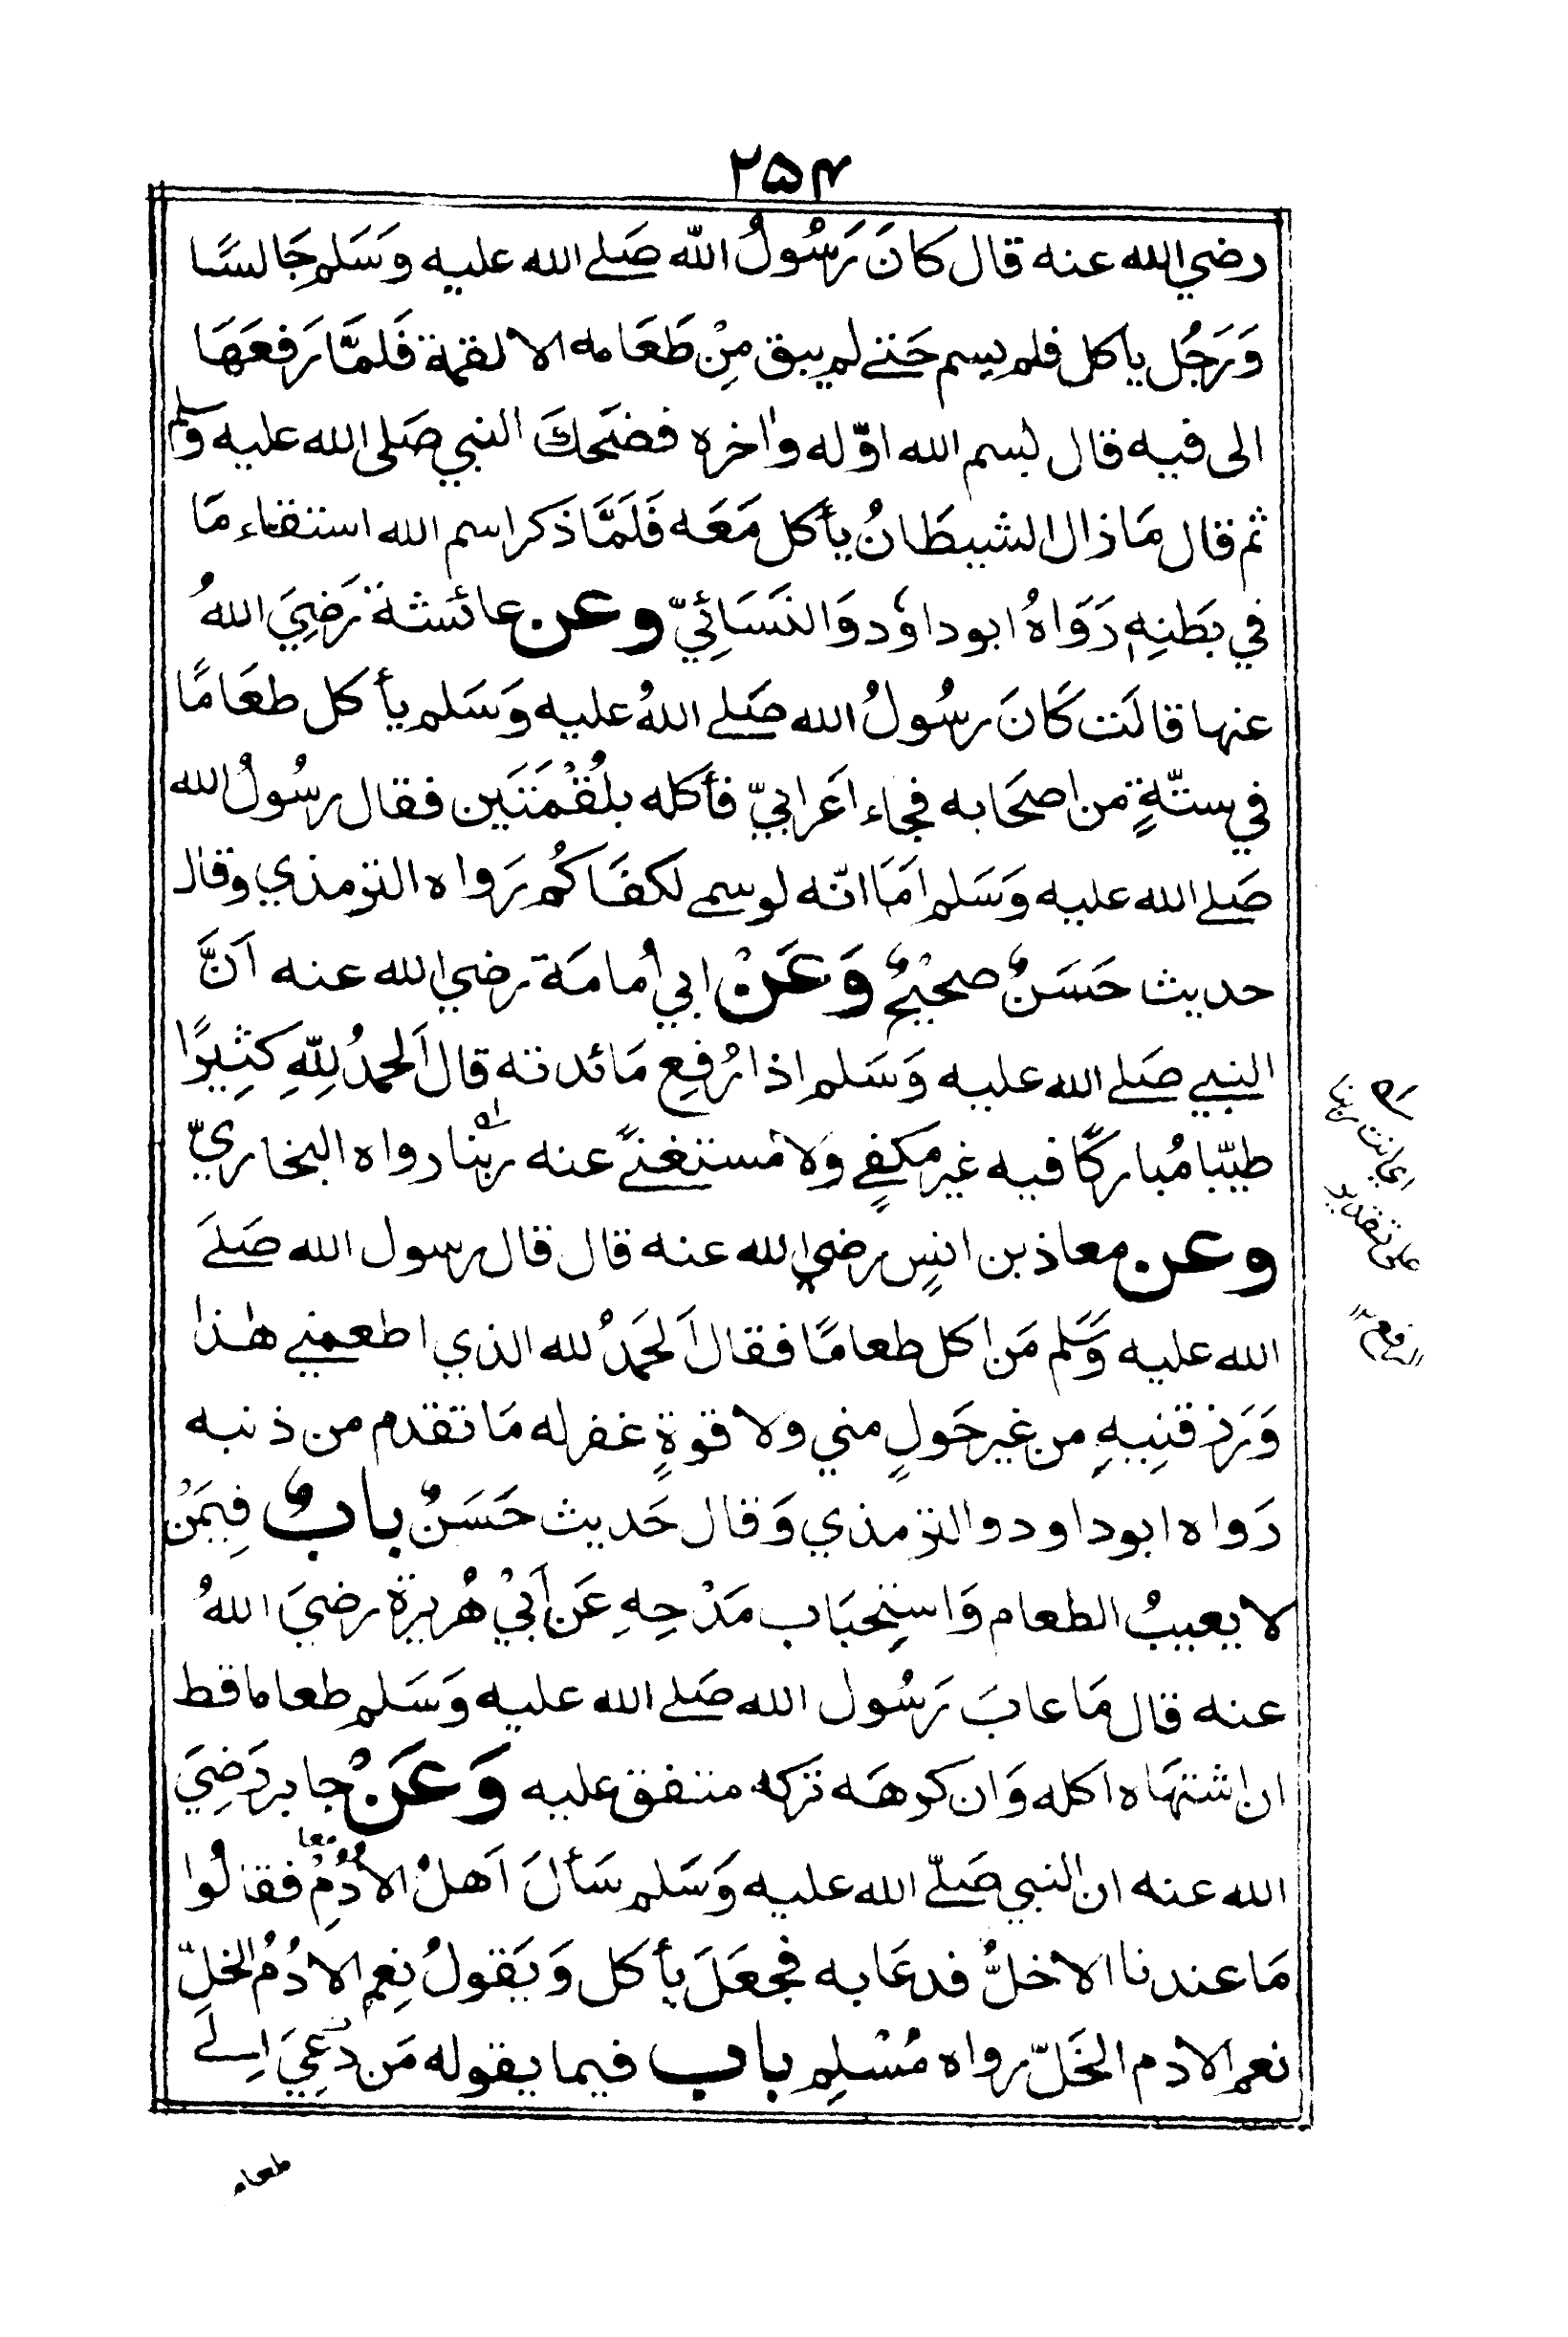 ۲۵۴
رضي الله عنه قال كَانَ رَسُولُ الله صَلے الله عليه وَسَلم جَالسًا
وَرَجُل ياكل فلم يسم حَتے لم يبق مِنْ طَعَامه الا لقمة فَلمَّا رَفعَهَا
الى فيه قال بسم الله اوّله واٰخره فضَحكَ النبي صَلى الله عليه وسلم
ثم قال مَا ذال الشيطَانُ يأكل مَعَه فَلَمَّا ذَكر اسم الله استقاء مَا
في بَطَنِه رَوَاهُ ابو داوٗد وَالنَسَائِيّ وعن عائشة رَضِيَ اللهُ
عنها قالَت كَانَ رسُولُ الله صَلے اللهُ عليه وَسَلم يأكل طعَامًا
في ستّةٍ من اصحَابه فجاء اعَرابيّ فأكله بلُقْمَتَين فقال رسُولُ الله
صَلے الله عليه وَسَلم امَا انّه لو سمے لكفَاكُم رَواه الترمذي وقال
حديث حَسَنٌ صحْيحٌ وَعَنْ ابي اُمامَة رضي الله عنه اَنَّ
النبي صَلے الله عليه وَسَلم اذا رُفِع مَائدته قال اَلحمدُ لِلّٰهِ كَثِيرًا
طيّبا مُباركًا فيه غير مَكفٍے وَلا مستغنًے عنه ربّنا رواه البخاريّ
وعن معاذ بن انسٍ رضي الله عنه قال قال رسول الله صَلےَ
الله عليه وَسَلم مَن اكل طعامًا فقال اَلحَمدُ لله الذي اطعمني هٰذا
وَرَزقنِيهِ من غير حَولٍ مني ولا قوةٍ غفر له مَا تقدم من ذنبه
رَواه ابو داود والترمذي وَقال حَديث حَسَنٌ بابٌ فِيمَنْ
لا يعيبُ الطعام وَاستِحبَاب مَدْحِهِ عَن اَبيْ هُريرة رضيَ اللهُ
عنه قال مَا عابَ رَسُول الله صَلے الله عليه وَسَلم طعاما قط
ان اشتهَاه اكله وَان كرهَه تركه متفق عليه وَعَنْ جابر رَضِيَ
الله عنه ان النبي صَلّے الله عليه وَسَلم سَألَ اَهلُ الاُدُمِ فقالُوا
مَا عندنا الا خلٌّ فدعَا به فجعَلَ يأكل وَيَقولُ نِعم الادُمُ الخلّ
نعم الادم الخَلّ رواه مُسْلِم باب فيما يقوله مَن دُعِيَ اِلےَ
على تقدير
طعام